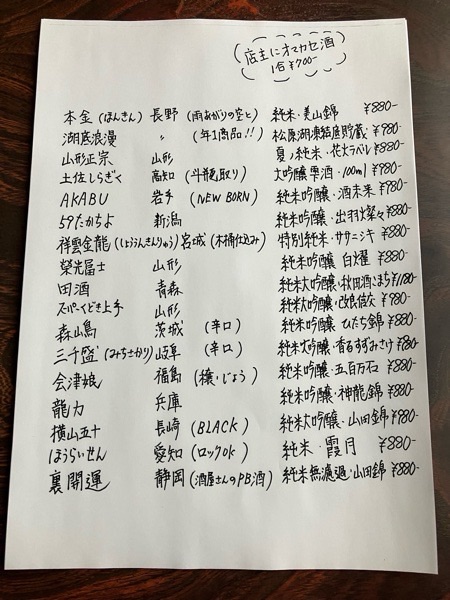 店主にオマカセ酒
1合¥700-
本金(ほんきん) 長野 (雨あがりの空と) 純米・美山錦 ¥880-
湖底浪漫 〃 (年1商品!!) 松原湖凍結底貯蔵 ¥980-
山形正宗 山形 夏ノ純米・花火ラベル ¥880-
土佐しらぎく 高知 (斗瓶取り) 大吟醸雫酒・100ml ¥980-
AKABU 岩手 (NEW BORN) 純米吟醸・酒未来 ¥980-
59たかちよ 新潟 純米吟醸・出羽燦々 ¥980-
祥雲金龍(しょううんきんりゅう) 宮城 (木桶仕込み) 特別純米・ササニシキ ¥880-
榮光冨士 山形 純米吟醸 白燿 ¥880-
田酒 青森 純米大吟醸・秋田酒こまち ¥1180-
スーパーくどき上手 山形 純米大吟醸・改良信交 ¥980-
森嶋 茨城 (辛口) 純米吟醸 ひたち錦 ¥880-
三千盛(みちさかり) 岐阜 (辛口) 純米大吟醸・香るすずみさけ ¥880-
会津娘 福島 (穣・じょう) 純米吟醸・五百万石 ¥880-
龍力 兵庫 純米吟醸・神龍錦 ¥880-
横山五十 長崎 (BLACK) 純米大吟醸・山田錦 ¥980-
ほうらいせん 愛知 (ロックOK) 純米・霞月 ¥880-
裏開運 静岡 (酒屋さんのPB酒) 純米無濾過・山田錦 ¥880-